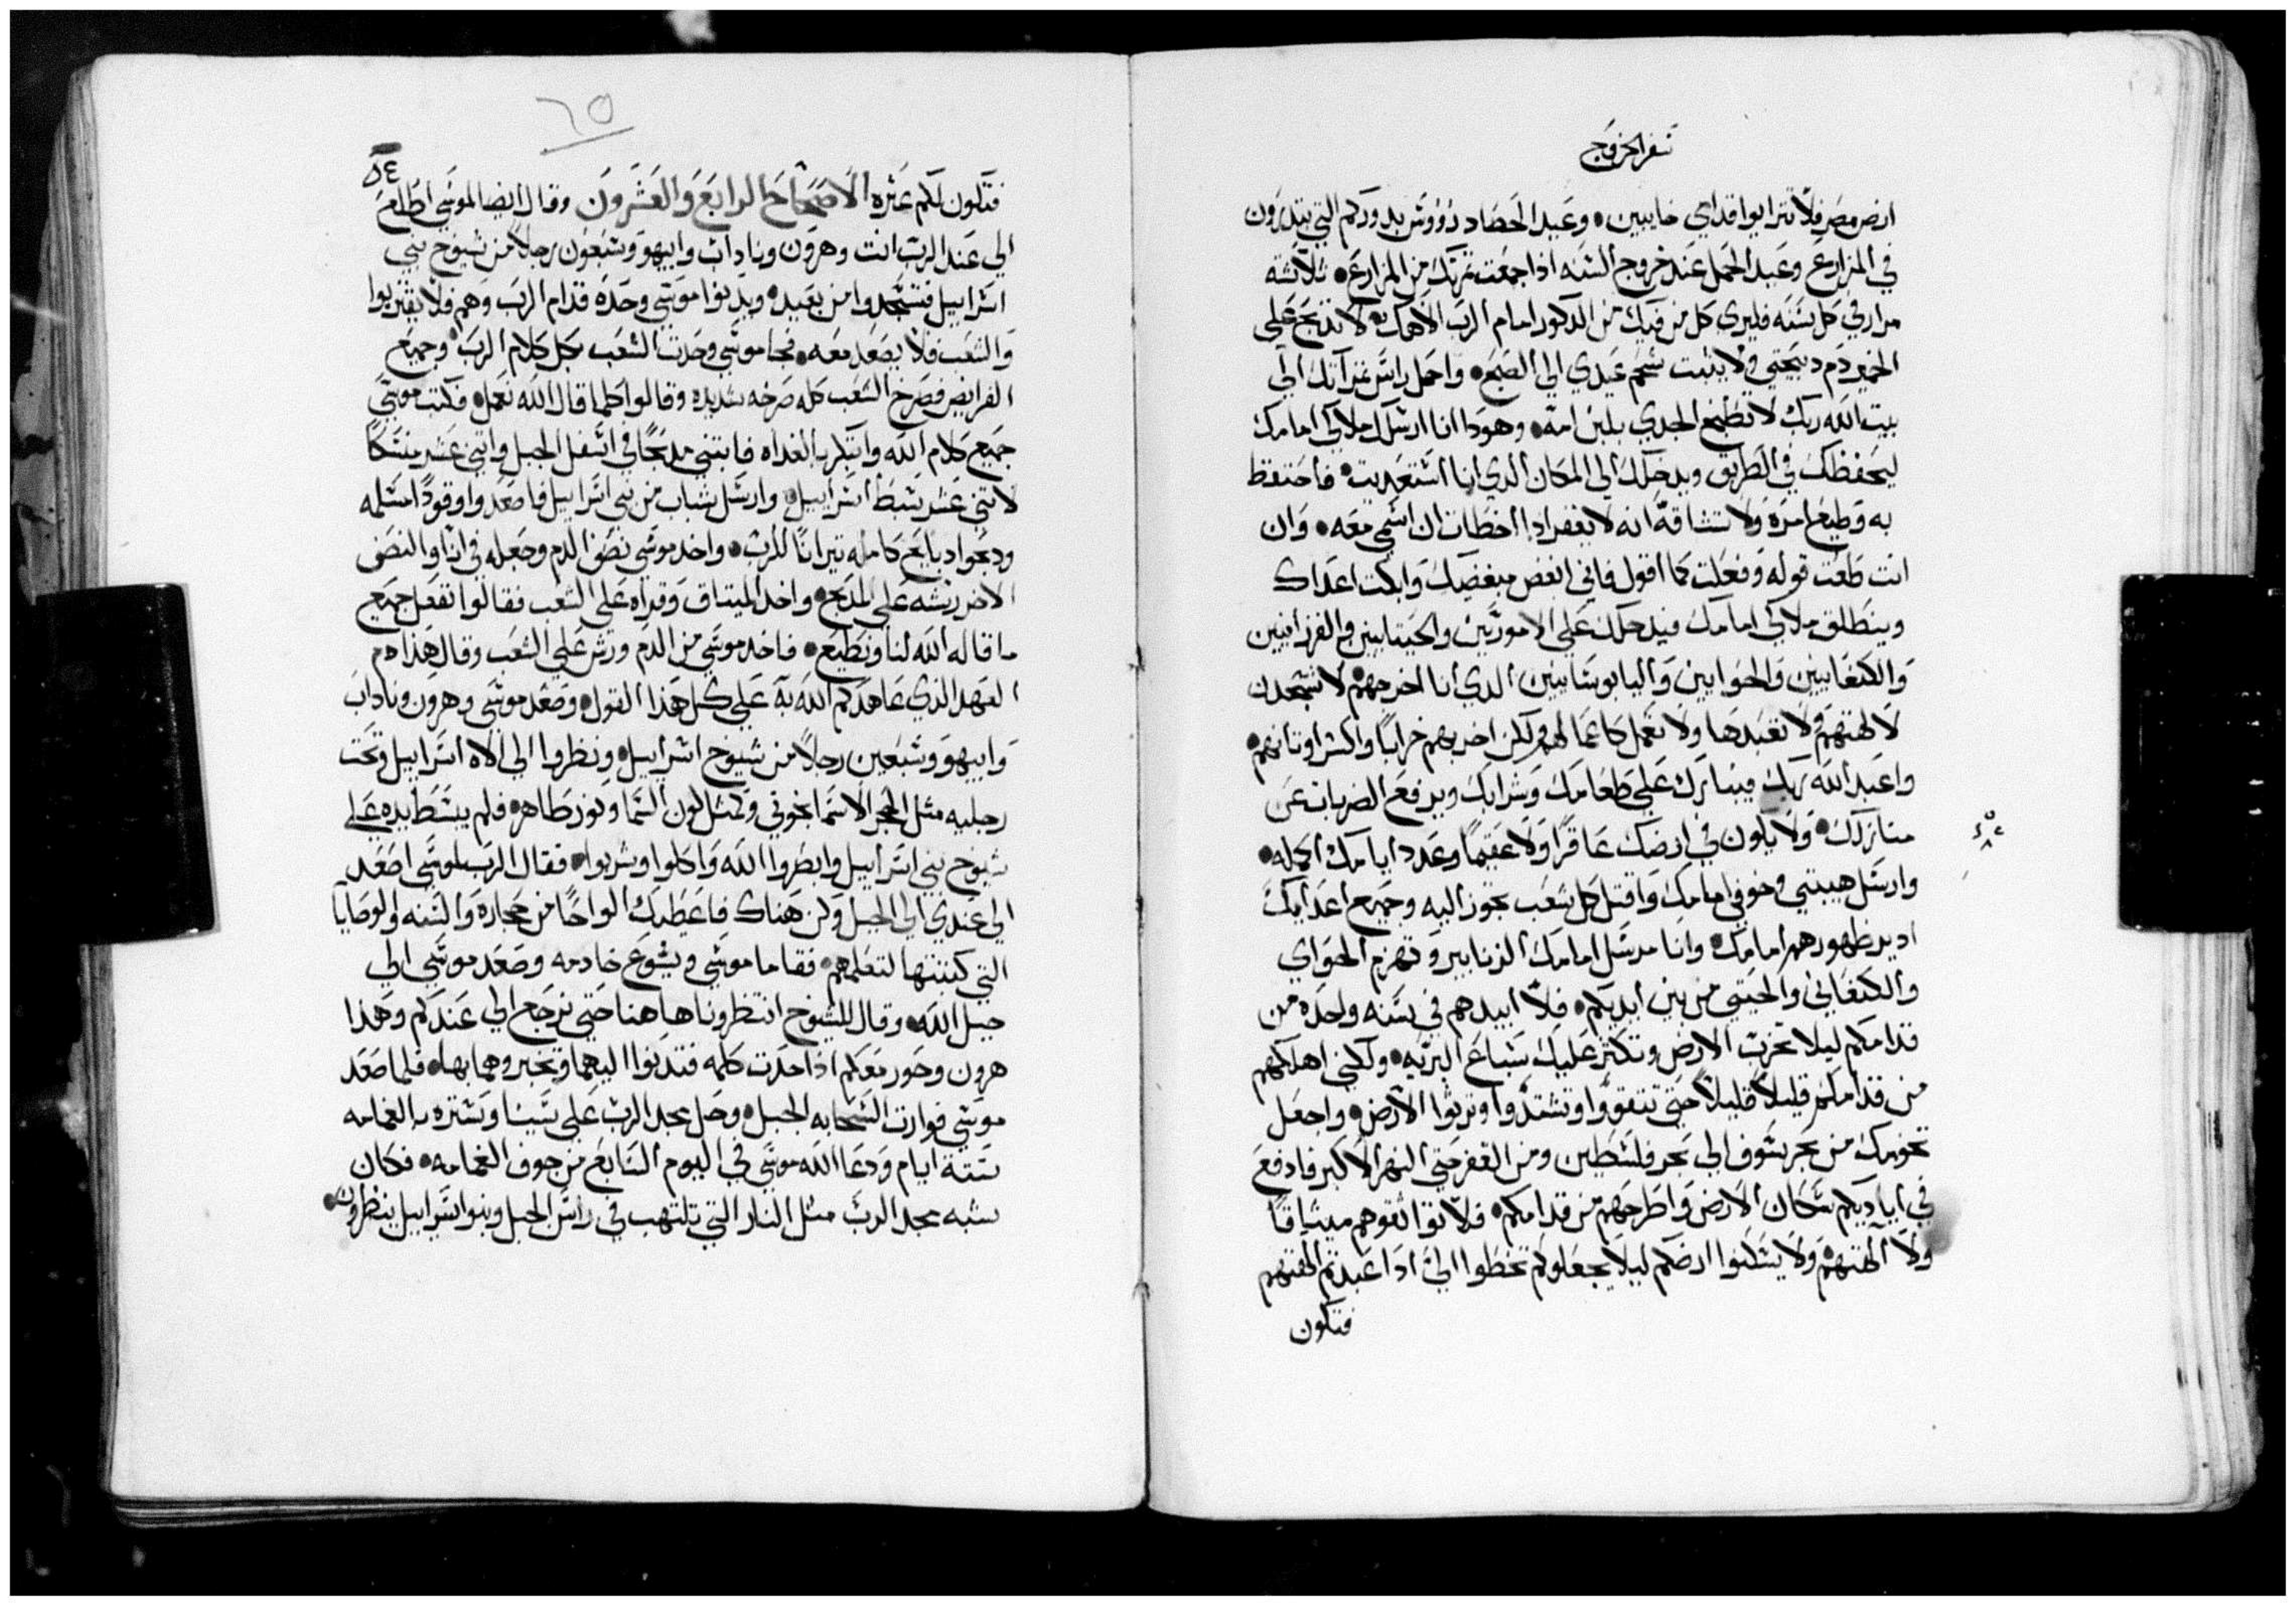 سفر الخروج
ارض مصر فلا تترايوا قدامي خايبين • وعيد الحصاد رووس بدوركم التي بتدرون
في المزارع وعيد الحمل عند خروج السنه اذا جمعت ثمرتك من المزارع • ثلاثه
مرار في كل سنه فليري كل من فيك من الدكور امام الرب الاهك • لا تدبح علي
الخمير دم دبيحتي ولا يثبت شحم عيدي الي الصبح • واحمل راس غراتك الي
بيت الله ربك لا تطبخ الجدي بلبن امه • وهودا انا ارسل ملاكي امامك
ليحفظك في الطريق ويدخلك الي المكان الدي انا استعديت • فاحتفظ
به وطيع امره ولا تشاقه انه لا يغفر ادا اخطات ان اسمي معه • وان
انت طعت قوله وفعلت كما اقول فاني ابغض مبغضيك وابكت اعداك
وينطلق ملاكي امامك فيدخلك علي الاموريين والحيتانيين والفرزانيين
والكنعانيين والحوايين واليابوسانيين الدي انا اخرجهم • لا تسجدن
لالهتهم ولا تعبدها ولا تعمل كاعمالهم ولكن اخربهم خرابا واكسر اوتانهم •
واعبد الله ربك فيبارك علي طعامك وشرابك ويرفع الضربات عن
منازلك • ولا يكون في ارضك عاقرا ولا عقيما وعدد ايامك اكمله •
وارسل هيبتي وخوفي امامك واقتل كل شعب تجوز اليه وجميع اعدايك
ادير ظهورهم امامك • وانا مرسل امامك الزنابير وتهزم الحواي
والكنعاني والحيتي من بين ايديكم • فلا ابيدهم في سنه واحده من
قدامكم ليلا تخرب الارض وتكثر عليك سباع البريه • ولكني اهلكهم
من قدامكم قليلا قليلا حتي تتقووا وتشتدوا وترثوا الارض • واجعل
تخومك من بحر سوف الي بحر فلسطين ومن القفر حتي النهر الاكبر فادفع
في اياديكم سكان الارض واطرحهم من قدامكم • فلا تواثقوهم ميثاقا
ولا الهتهم ولا يسكنوا ارضكم ليلا يجعلوكم تخطوا الي ادا عبدتم الهتهم
فتكون
٦٥
٥٤
فتكون لكم عثره الاصحاح الرابع والعشرون وقال ايضا لموسي اطلع
الي عند الرب انت وهرون وناداب وابيهو وسبعون رجلا من شيوخ بني
اسراييل فتسجدوا من بعيد • ويدنوا موسي وحده قدام الرب وهم فلا يقتربوا
والشعب فلا يصعد معه • فجا موسي وحدث الشعب بكل كلام الرب • وجميع
الفرايض فصرخ الشعب كله صرخه شديده وقالوا كلما قال الله نعمل • فكتب موسي
جميع كلام الله وابتكر بالغداه فابتني مدبحا في اسفل الجبل واتني عشر منسكا
لاتني عشر سبط اسراييل • وارسل شباب من بني اسراييل فاصعدوا وقودا مسلمه
ودبحوا دبايح كامله تيرانا للرب • واخد موسي نصف الدم وجعله في انا والنصف
الاخر رشه علي المدبح • واخد الميتاق وقراه علي الشعب فقالوا نفعل جميع
ما قاله الله لنا ونطيع • فاخد موسي من الدم ورش علي الشعب وقال هدا دم
العهد الذي عاهدكم الله به علي كل هذا القول • وصعد موسي وهرون وناداب
وابيهو وسبعين رجلا من شيوخ اسراييل • ونظروا الي الاه اسراييل وتحت
رجليه مثل الحجر الاسمانجوني وكمثل لون السما ونور طاهر • فلم يبسط يده علي
شيوخ بني اسراييل وابظروا الله واكلوا وشربوا • فقال الرب لموسي اصعد
الي عندي الي الجبل وكن هناك فاعطيك الواحا من حجاره والسنه والوصايا
التي كتبتها لتعلمهم • فقاما موسي ويشوع خادمه وصعد موسي الي
جبل الله • وقال للشيوخ انتظرونا هاهنا حتي نرجع الي عندكم وهذا
هرون وحور معكم اذا حدت كلمه فتدنوا اليهما وتخبروهما بها • فلما صعد
موسي فوارت السحابه الجبل • وحل مجد الرب علي سينا وستره بالغمامه
ستة ايام ودعا الله موسي في اليوم السابع من جوف الغمامه • فكان
شبه مجد الرب مثل النار التي تلتهب في راس الجبل وبنوا اسراييل ينظرون •